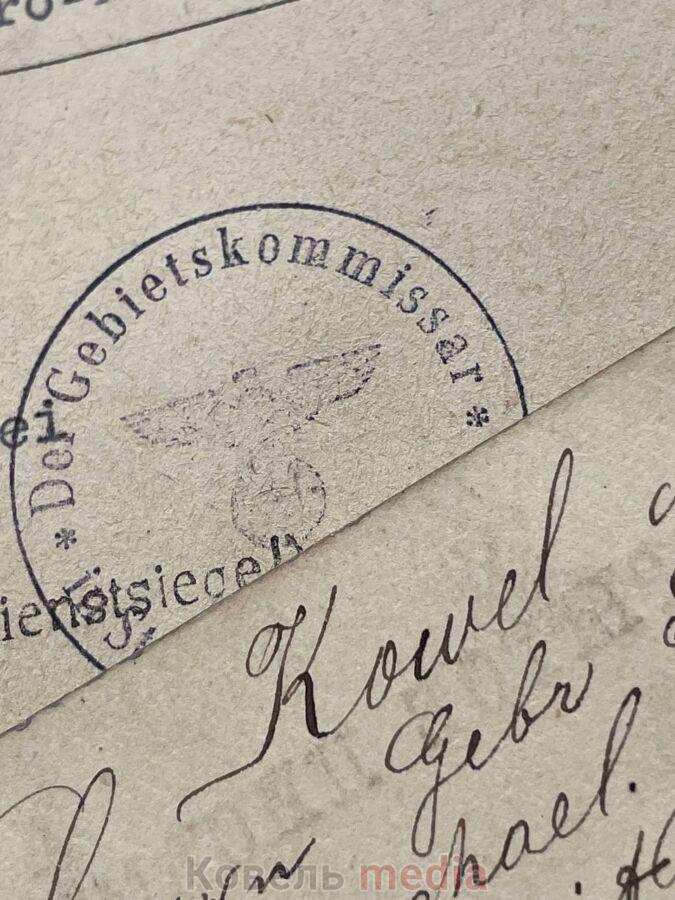 * Der Gebietskommissar *
ei
ienstsiegel)
Kowel
Gebr
hael.
Ковель media